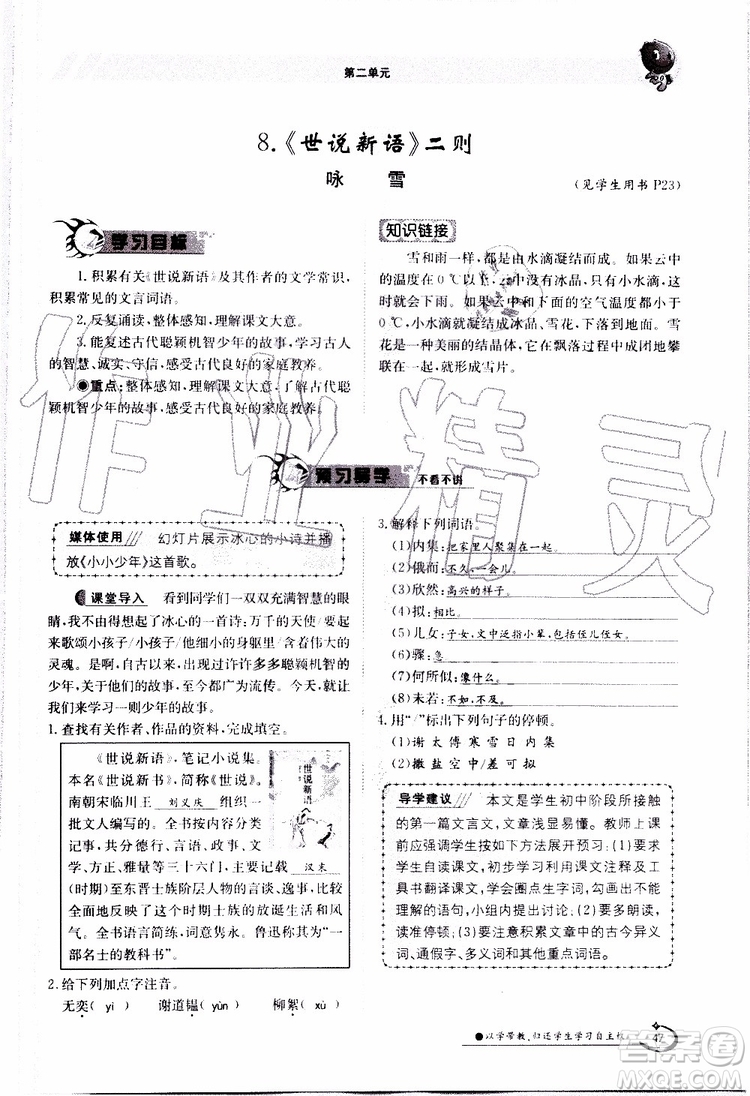 第二单元
8.《世说新语》二则
咏 雪
(见学生用书 P23)
学习目标
1.积累有关《世说新语》及其作者的文学常识,
积累常见的文言词语。
2.反复诵读,整体感知,理解课文大意。
3.能复述古代聪颖机智少年的故事,感受古人
的智慧、诚实、守信,感受古代良好的家庭教养。
●重点:整体感知,理解课文大意,了解古代聪
颖机智少年的故事,感受古代良好的家庭教养。
知识链接
雪和雨一样,都是由水滴凝结而成。如果云中
的温度在 0 ℃以上,云中没有冰晶,只有小水滴,这
时就会下雨。如果云中和云下面的空气温度都低于
0 ℃,小水滴就凝结成冰晶、雪花,下落到地面。雪
花是一种美丽的结晶体,它在飘落过程中成团地攀
联在一起,就形成雪片。
预习导学 不看不讲
媒体使用 幻灯片展示冰心的小诗并播
放《小小少年》这首歌。
课堂导入 看到同学们一双双充满智慧的眼
睛,我不由得想起了冰心的一首诗:万千的天使,要起
来歌颂小孩子/小孩子/细小的身躯里/含着伟大的
灵魂。自古以来,出现过许许多多聪颖机智的
少年,关于他们的故事,至今都广为流传。今天,就让
我们来学习一则少年的故事。
1.查找有关作者、作品的资料,完成填空。
《世说新语》,笔记小说集。
本名《世说新书》,简称《世说》。
南朝宋临川王 刘义庆 组织一
批文人编写的。全书按类书形式
记事,共分德行、言语、政事、文
学、方正、雅量等三十六门,主要记载 汉末
(时期)至东晋士族阶层人物的言谈、逸事,比较
全面地反映了这个时期士族的思想、生活和风
气。全书语言简练,词意隽永。鲁迅称其为“一
部名士的教科书”。
世说新语
2.给下列加点字注音。
无奕( yì ) 谢道韫( yùn ) 柳絮( xù )
3.解释下列词语。
(1)内集:把家里人聚集在一起。
(2)俄而:不久。
(3)欣然:高兴的样子。
(4)拟:相比。
(5)儿女:子女,文中泛指小辈,包括侄儿侄女。
(6)骤:急
(7)何所似:像什么。
(8)未若:不如,不及。
4.用“/”标出下列句子的停顿。
(1)谢太傅寒雪日内集
(2)撒盐空中/差可拟
导学建议 本文是学生初中阶段所接触
的第一篇文言文,文章浅显易懂。教师上课
前应强调学生按如下方法展开预习:(1)要求
学生自读课文,初步学习利用课文注释及工
具书翻译课文,学会圈点生字词,勾画难以
理解的语句,小组内提出讨论;(2)要多朗读,
读准停顿;(3)要注意积累文章中的古今异义
词、通假字、多义词和其他重点词语。
●以学带教,归还学生学习自主权
47
作业精灵
答案圈
MXQE.COM